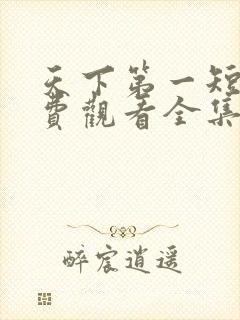 天下第一短
費觀看全集
醉宸逍遥